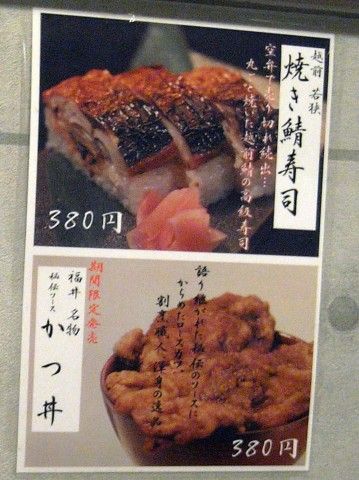 越前 若狭
焼き鯖寿司
空弁で売り切れ続出…
丸ごと焼いた越前鯖の高級寿司
380円
期間限定発売
福井 名物
秘伝ソース
かつ丼
語り継がれた秘伝のソースに
からめたロースカツ
割烹職人、渾身の逸品
380円